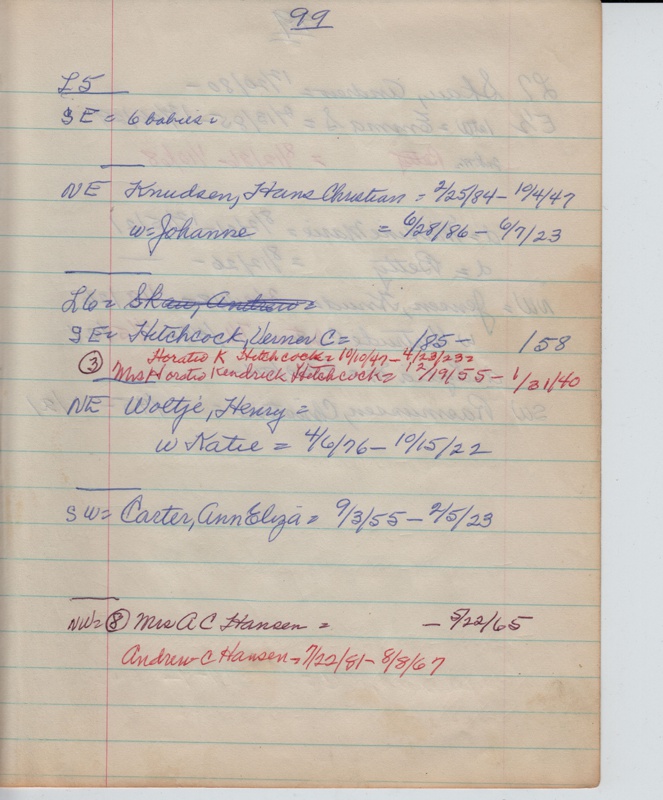 99
L5
SE = 6 babies =
NE Knudsen, Hans Christian = 2/25/84 - 10/4/47
w = Johanne = 6/28/86 - 6/7/23
L6 = Skaw, Andrew =
SE = Hitchcock, Verner C = /85 - /58
③ Horatio K Hitchcock = 10/10/47 - 4/23/23 =
Mrs Horatio Kendrick Hitchcock = 12/19/55 - 1/31/40
NE Woltje, Henry =
w Katie = 4/6/76 - 10/15/22
SW = Carter, Ann Eliza = 9/3/55 - 2/5/23
NW = ⑧ Mrs A C Hansen = - 5/22/65
Andrew C Hansen - 7/22/81 - 8/8/67